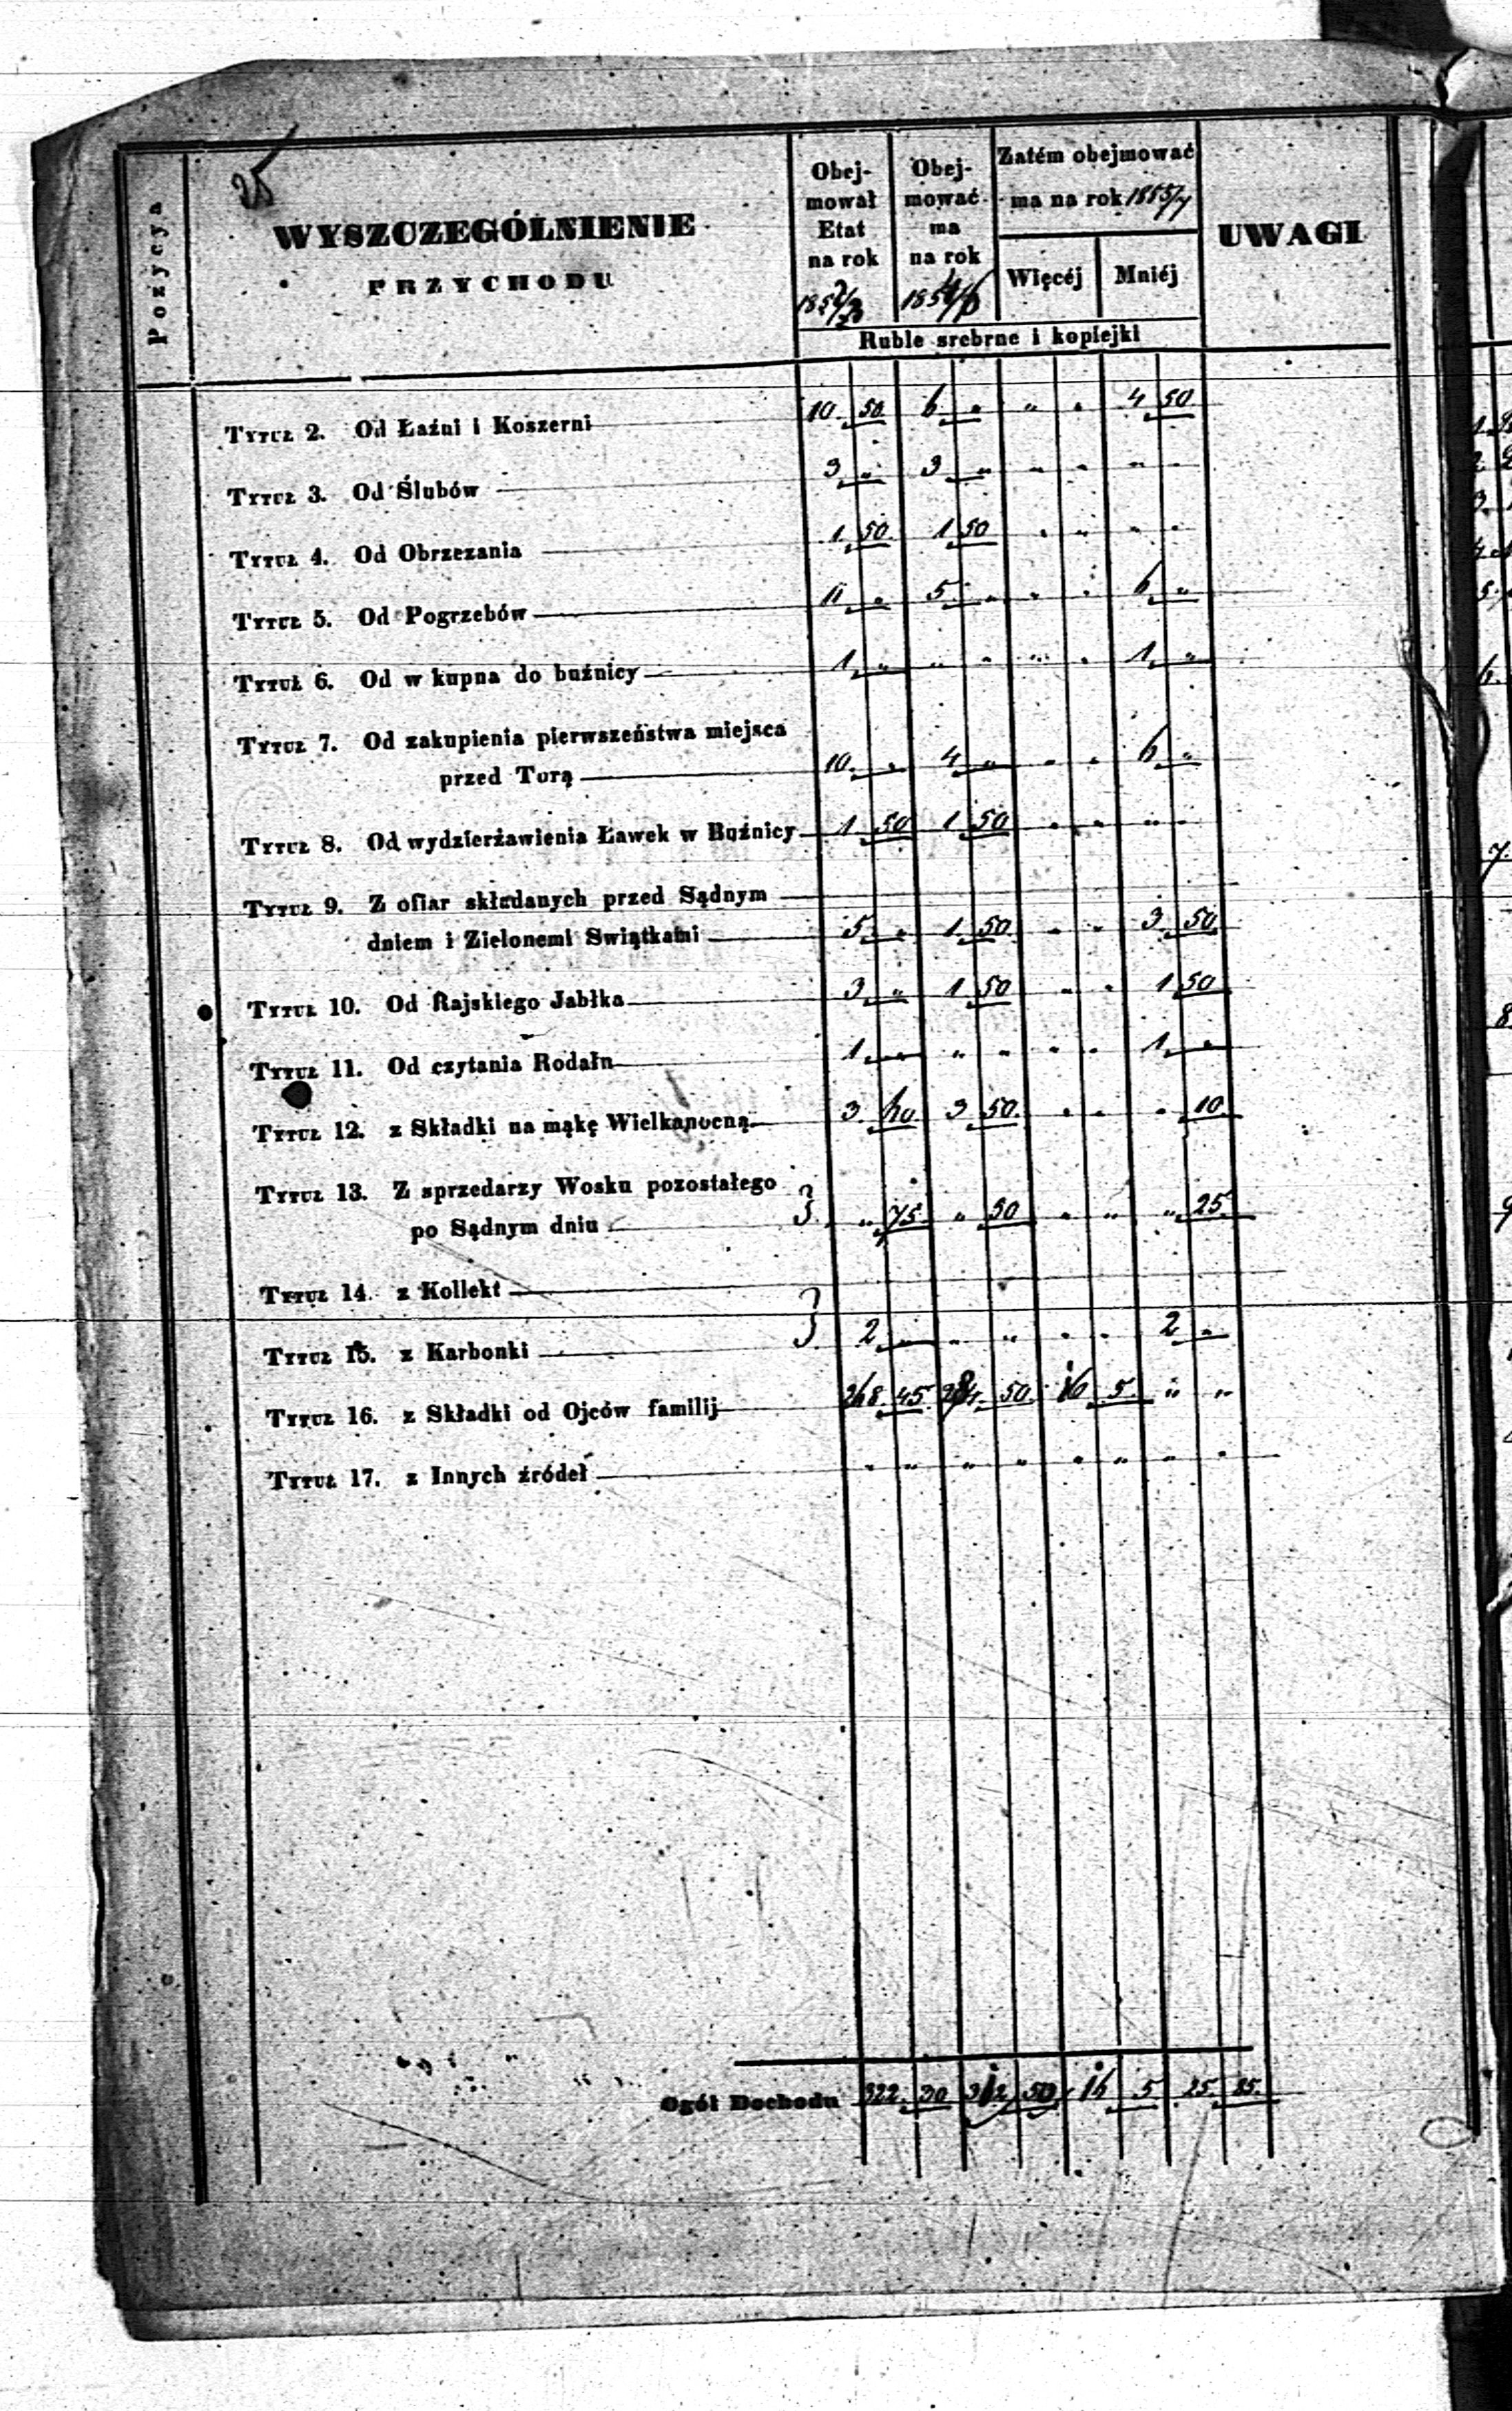 25
Pozycya
WYSZCZEGÓLNIENIE
PRZYCHODU
Obej-
mował
Etat
na rok
Obej-
mować
ma
na rok
Zatém obejmować
ma na rok
Więcéj
Mniéj
Ruble srebrne i kopiejki
UWAGI
Tytuł 2. Od Łaźni i Koszerni 10 50 6 " " " 4 50
Tytuł 3. Od Ślubów 3 " 3 " " " " "
Tytuł 4. Od Obrzezania 1 50 1 50 " " " "
Tytuł 5. Od Pogrzebów 11 " 5 " " " 6 "
Tytuł 6. Od w kupna do buźnicy 1 " " " " " 1 "
Tytuł 7. Od zakupienia pierwszeństwa miejsca
przed Torą 10 " 4 " " " 6 "
Tytuł 8. Od wydzierżawienia Ławek w Buźnicy 1 50 1 50 " " " "
Tytuł 9. Z ofiar składanych przed Sądnym
dniem i Zielonemi Swiątkami 5 " 1 50 " " 3 50
Tytuł 10. Od Rajskiego Jabłka 3 " 1 50 " " 1 50
Tytuł 11. Od czytania Rodału 1 " " " " " 1 "
Tytuł 12. z Składki na mąkę Wielkanocną 3 60 3 50 " " " 10
Tytuł 13. Z sprzedarzy Wosku pozostałego
po Sądnym dniu " 75 " 50 " " " 25
Tytuł 14. z Kollekt
Tytuł 15. z Karbonki 2 " " " " " 2 "
Tytuł 16. z Składki od Ojców familij 268 45 284 50 16 5 " "
Tytuł 17. z Innych źródeł " " " " " " " "
Ogół Dochodu 322 30 312 50 16 5 25 85